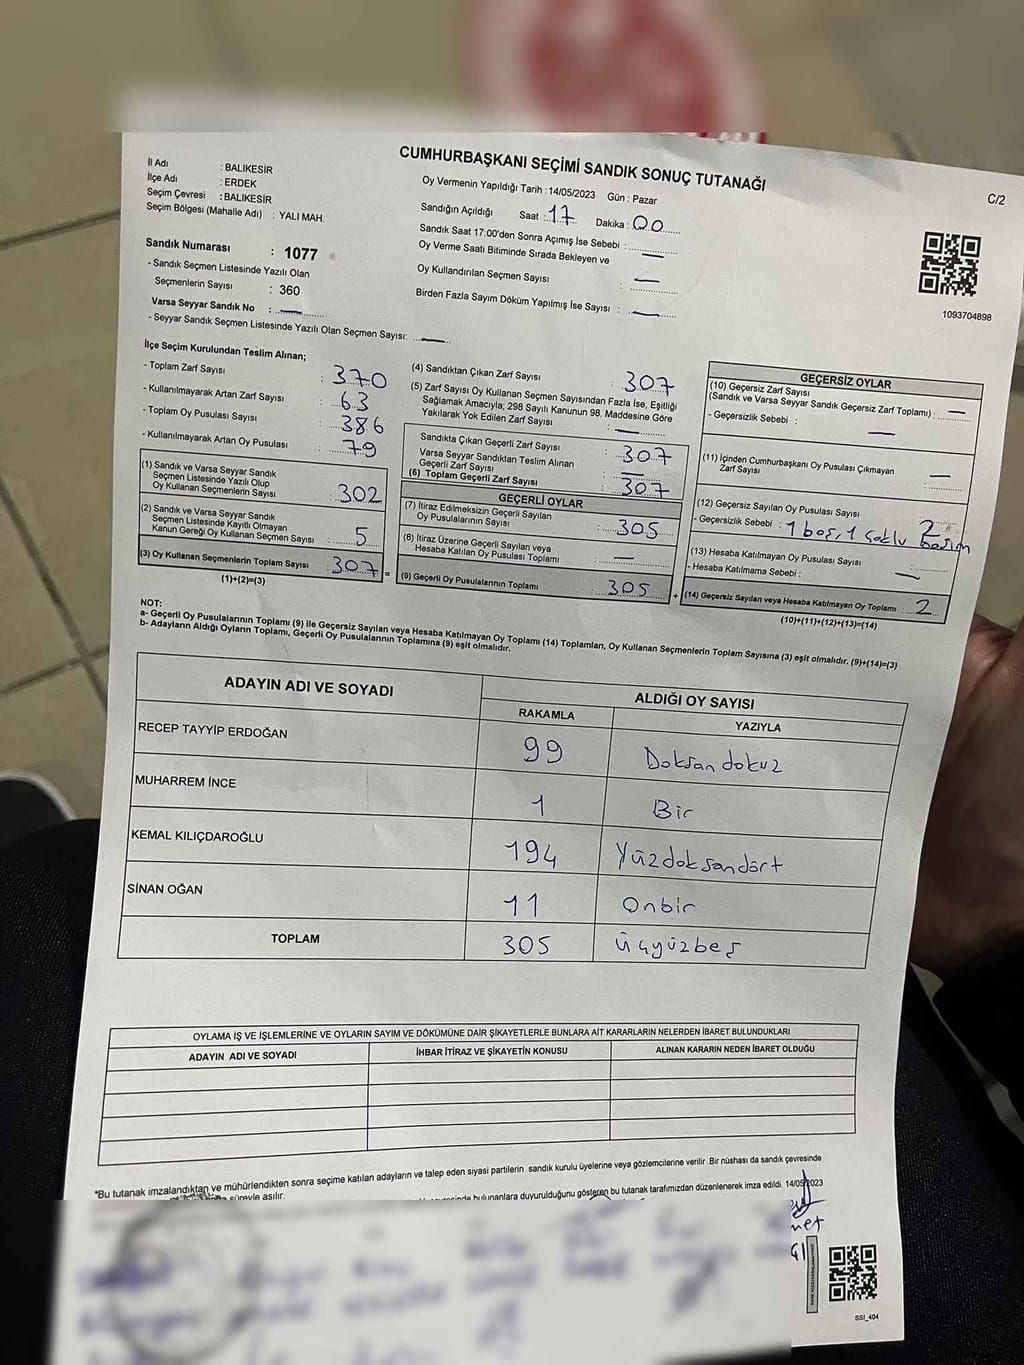 CUMHURBAŞKANI SEÇİMİ SANDIK SONUÇ TUTANAĞI
C/2
İl Adı : BALIKESİR
İlçe Adı : ERDEK
Seçim Çevresi : BALIKESİR
Seçim Bölgesi (Mahalle Adı) : YALI MAH.
Sandık Numarası : 1077
- Sandık Seçmen Listesinde Yazılı Olan
Seçmenlerin Sayısı : 360
Varsa Seyyar Sandık No :
- Seyyar Sandık Seçmen Listesinde Yazılı Olan Seçmen Sayısı:
Oy Vermenin Yapıldığı Tarih : 14/05/2023 Gün : Pazar
Sandığın Açıldığı Saat : 17 Dakika : 00
Sandık Saat 17:00'den Sonra Açımış İse Sebebi :
Oy Verme Saati Bitiminde Sırada Bekleyen ve
Oy Kullandırılan Seçmen Sayısı :
Birden Fazla Sayım Döküm Yapılmış İse Sayısı :
1093704898
İlçe Seçim Kurulundan Teslim Alınan;
- Toplam Zarf Sayısı : 370
- Kullanılmayarak Artan Zarf Sayısı : 63
- Toplam Oy Pusulası Sayısı : 386
- Kullanılmayarak Artan Oy Pusulası : 79
(1) Sandık ve Varsa Seyyar Sandık
Seçmen Listesinde Yazılı Olup
Oy Kullanan Seçmenlerin Sayısı : 302
(2) Sandık ve Varsa Seyyar Sandık
Seçmen Listesinde Kayıtlı Olmayan
Kanun Gereği Oy Kullanan Seçmen Sayısı : 5
(3) Oy Kullanan Seçmenlerin Toplam Sayısı : 307 =
(1)+(2)=(3)
(4) Sandıktan Çıkan Zarf Sayısı : 307
(5) Zarf Sayısı Oy Kullanan Seçmen Sayısından Fazla İse, Eşitliği
Sağlamak Amacıyla; 298 Sayılı Kanunun 98. Maddesine Göre
Yakılarak Yok Edilen Zarf Sayısı :
Sandıkta Çıkan Geçerli Zarf Sayısı : 307
Varsa Seyyar Sandıktan Teslim Alınan
Geçerli Zarf Sayısı
(6) Toplam Geçerli Zarf Sayısı : 307
GEÇERLİ OYLAR
(7) İtiraz Edilmeksizin Geçerli Sayılan
Oy Pusulalarının Sayısı : 305
(8) İtiraz Üzerine Geçerli Sayılan veya
Hesaba Katılan Oy Pusulası Toplamı :
(9) Geçerli Oy Pusulalarının Toplamı : 305 +
GEÇERSİZ OYLAR
(10) Geçersiz Zarf Sayısı
(Sandık ve Varsa Seyyar Sandık Geçersiz Zarf Toplamı) :
- Geçersizlik Sebebi :
(11) İçinden Cumhurbaşkanı Oy Pusulası Çıkmayan
Zarf Sayısı :
(12) Geçersiz Sayılan Oy Pusulası Sayısı : 2
- Geçersizlik Sebebi : 1 boş, 1 çoklu basım
(13) Hesaba Katılmayan Oy Pusulası Sayısı :
- Hesaba Katılmama Sebebi :
(14) Geçersiz Sayılan veya Hesaba Katılmayan Oy Toplamı : 2
(10)+(11)+(12)+(13)=(14)
NOT:
a- Geçerli Oy Pusulalarının Toplamı (9) ile Geçersiz Sayılan veya Hesaba Katılmayan Oy Toplamı (14) Toplamları, Oy Kullanan Seçmenlerin Toplam Sayısına (3) eşit olmalıdır. (9)+(14)=(3)
b- Adayların Aldığı Oyların Toplamı, Geçerli Oy Pusulalarının Toplamına (9) eşit olmalıdır.
ADAYIN ADI VE SOYADI ALDIĞI OY SAYISI
RAKAMLA YAZIYLA
RECEP TAYYİP ERDOĞAN 99 Doksan dokuz
MUHARREM İNCE 1 Bir
KEMAL KILIÇDAROĞLU 194 Yüzdoksandört
SİNAN OĞAN 11 Onbir
TOPLAM 305 Üçyüzbeş
OYLAMA İŞ VE İŞLEMLERİNE VE OYLARIN SAYIM VE DÖKÜMÜNE DAİR ŞİKAYETLERLE BUNLARA AİT KARARLARIN NELERDEN İBARET BULUNDUKLARI
ADAYIN ADI VE SOYADI İHBAR İTİRAZ VE ŞİKAYETİN KONUSU ALINAN KARARIN NEDEN İBARET OLDUĞU
*Bu tutanak imzalandıktan ve mühürlendikten sonra seçime katılan adayların ve talep eden siyasi partilerin sandık kurulu üyelerine veya gözlemcilerine verilir .Bir nüshası da sandık çevresinde
süreyle asılır.
bulunanlara duyurulduğunu gösteren bu tutanak tarafımızdan düzenlenerek imza edildi. 14/05/2023
SSI_404